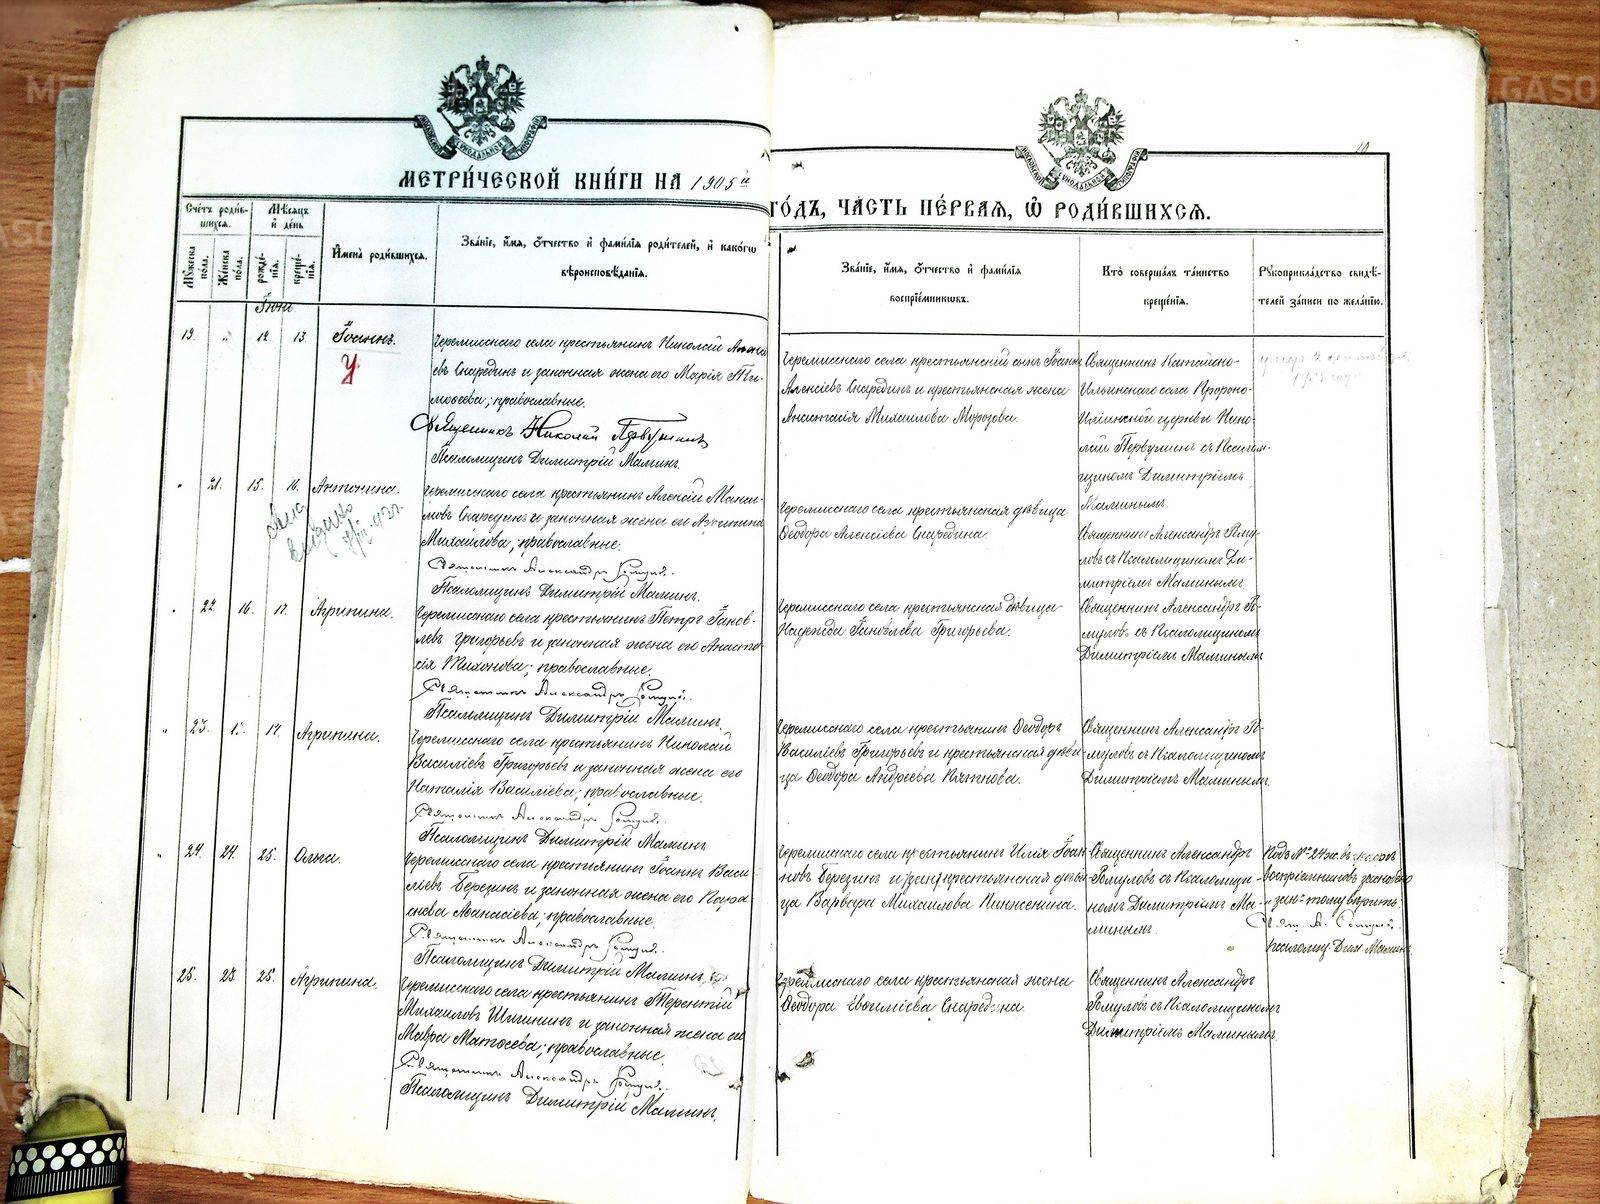 МЕТРИ́ЧЕСКОЙ КНИ́ГИ НА 1905 й
ГО́ДЪ, ЧА́СТЬ ПЕ́РВАЯ, Ѡ҆ РОДИ́ВШИХСЯ.
10
Сче́тъ роди́в-
шихся.
Мѣ́сяцъ
и҆ де́нь
Му́жеска
по́ла.
Же́нска
по́ла.
рожде́-
нїя.
креще́-
нїя.
И҆мена̀ роди́вшихся.
Зва́нїе, и҆́мя, ѻ҆́тчество и҆ фами́лїя роди́телей, и҆ како́гѡ
вѣроисповѣ́данїя.
Зва́нїе, и҆́мя, ѻ҆́тчество и҆ фами́лїя
воспрїе́мникѡвъ.
Кто̀ соверша́лъ та́инство
креще́нїя.
Рꙋкоприкла́дство свидѣ́-
телей за́писи по жела́нїю.
Іюнь.
19. „ 12. 13. Іоаннъ.
У
Черемисскаго села крестьянинъ Николай Алексі-
евъ Снаредин и законная жена его Марія Ти-
моѳеева; православные.
Священникъ Николай Первушинъ
Псаломщикъ Димитрій Маминъ.
Черемисскаго села крестьянскій сынъ Іоаннъ
Алексіевъ Снаредин и крестьянская жена
Анастасія Михаилова Морозова.
Священникъ Катайско-
Ильинскаго села Пророко-
Иліинской церкви Нико-
лай Первушинъ съ Псалом-
щикомъ Димитріемъ
Маминымъ.
„ 21. 15. 16. Антонина.
Черемисскаго села крестьянинъ Алексій Макси-
мовъ Снаредин и законная жена его
Михаилова; православные.
Священникъ Александръ Ромуловъ.
Псаломщикъ Димитрій Маминъ.
Черемисскаго села крестьянская дѣвица
Ѳеодора Алексіева Снаредина.
Священникъ Александръ Рому-
ловъ съ Псаломщикомъ Ди-
митріемъ Маминымъ.
„ 22. 16. 17. Агрипина.
Черемисскаго села крестьянинъ Петръ Іаков-
левъ Григорьевъ и законная жена его Анаста-
сія Тихонова; православные.
Священникъ Александръ Ромуловъ.
Псаломщикъ Димитрій Маминъ.
Черемисскаго села крестьянская дѣвица
Надежда Іаковлева Григорьева.
Священникъ Александръ Ро-
муловъ съ Псаломщикомъ
Димитріемъ Маминымъ
„ 23. 17. Агрипина.
Черемисскаго села крестьянинъ Николай
Василіевъ Григорьевъ и законная жена его
Наталія Василіева; православные.
Священникъ Александръ Ромуловъ.
Псаломщикъ Димитрій Маминъ
Черемисскаго села крестьянинъ Ѳеодоръ
Василіевъ Григорьевъ и крестьянская дѣви-
ца Ѳеодора Андреева Пяткова.
Священникъ Александръ Ро-
муловъ съ Псаломщикомъ
Димитріемъ Маминымъ.
„ 24. 24. 25. Ольга.
Черемисскаго села крестьянинъ Іоаннъ Васи-
ліевъ Березинъ и законная жена его Пара-
скева Аѳанасіева; православные.
Священникъ Александръ Ромуловъ.
Псаломщикъ Димитрій Маминъ.
Черемисскаго села крестьянинъ Илія Іоан-
новъ Березинъ и крестьянская дѣви-
ца Варвара Михаилова
Священникъ Александръ
Ромуловъ съ Псаломщи-
комъ Димитріемъ Ма-
минымъ.
Подъ № 24 ж. въ графѣ
воспріемниковъ
тому вѣрить.
Свящ. А. Ромуловъ.
Псаломщ. Дим. Маминъ.
25. 23. 25. Агрипина.
Черемисскаго села крестьянинъ Терентій
Михаиловъ Шигинин и законная жена его
Мавра Матѳеева; православные.
Священникъ Александръ Ромуловъ.
Псаломщикъ Димитрій Маминъ.
Черемисскаго села крестьянская жена
Ѳеодора Евѳиміева Снаредина.
Священникъ Александръ
Ромуловъ съ Псаломщикомъ
Димитріемъ Маминымъ.
GASO